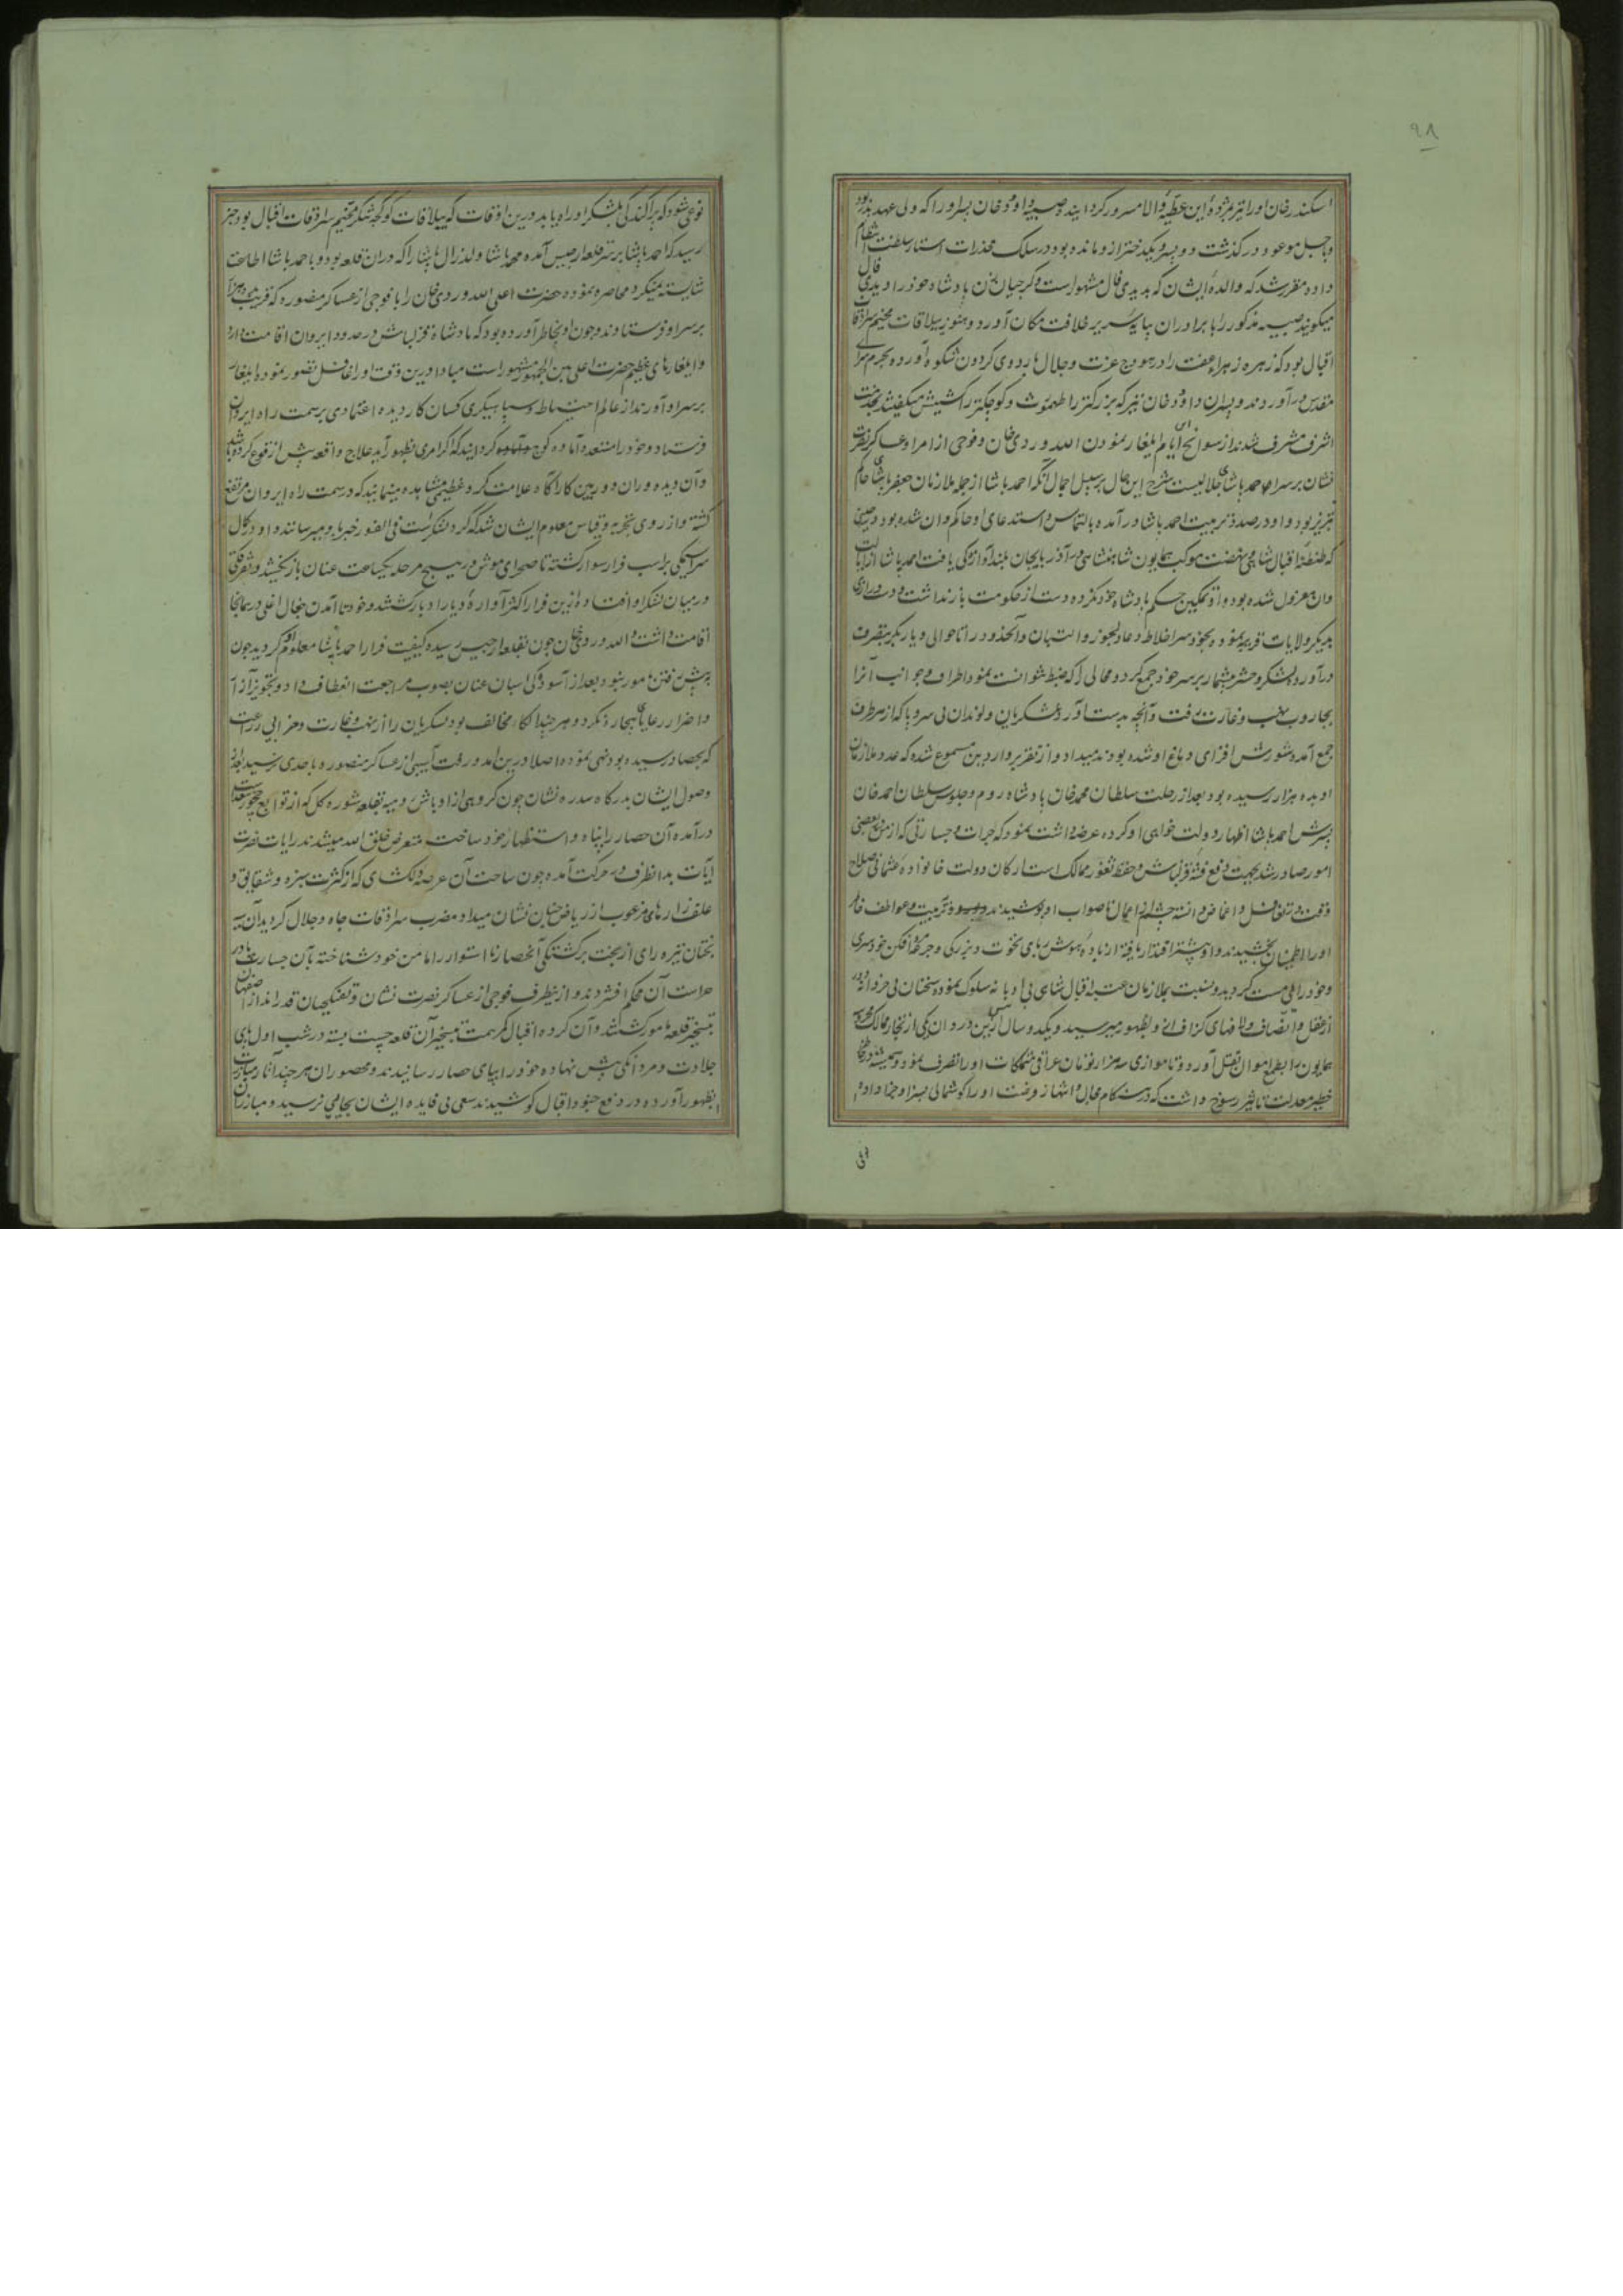 ۹۸
اسکندرخان اورا نیز مژدۀ این عطیۀ والا مسرور کردانید و صبیه داودخان بسر اورا که ولی عهد بدر بود
و باجل موعود در کذشت و دو بسر و یکدختر ازو مانده بود در سلک مخدرات استار سلطنت انتظام
داد و مقرر شد که والدۀ ایشان که بدیدی فال مشهور است و کرجیان زن بادشاه خود را دیدی فال
میکویند صبیه مذکور را با برادران ببایه سریر خلافت مکان آورد و هنوز ییلاقات مخیم سرادقات
اقبال بود که زهره زهراء عفت را در هودج عزت و جلال باردوی کردون شکوه آورده بحرم سرای
مقدس در آوردند و بسران داود خان نیز که بزرکتر را طهمورث و کوجکتر را میکفتند بخدمت
اشرف مشرف شدند از سوانح این ایام ایلغار نمودن الله وردی خان و فوجی از امرا و عساکر نصرت
نشان بر سر احمد باشای جلالیست شرح این حال بر سبیل اجمال آنکه احمد باشا از جمله ملازمان جعفر باشای حاکم
تبریز بود و او در صدد تربیت احمد باشا در آمده بالتماس و استدعای او حاکم وان شده بود در حینی
که طنطنۀ اقبال شاهی و نهضت موکب همایون شاهنشاهی در آذربایجان بلند آوازکی یافت احمد باشا از ایالت
وان معزول شده بود و او تمکین حکم بادشاه خود نکرده دست از حکومت باز نداشت و دست درازی
بدیکر ولایات قریبه نموده بخود سر اخلاط و عادلجوز و و آنحدود را تا حوالی دیاربکر بتصرف
در آورد و لشکر و حشر بیشمار بر سر خود جمع کرد و محالی را که ضبط میتوانست نمود و اطراف و جوانب آنرا
بجاروب نهب و غارت میرفت و آنچه بدست آورد بلشکریان و لوندان بی سر و با که از هر طرف
جمع آمده شورش افزای دماغ او شده بودند میداد و از تقریر واردین مسموع شده که عدد ملازمان
او بده هزار رسیده بود بعد از رحلت سلطان محمد خان بادشاه روم و جلوس سلطان احمد خان
بسرش احمد باشا اظهار دولت خواهی او کرده عرضه داشت نمود که جرات و جسارتی که از من در بعضی
امور صادر شد بجهت دفع فتنه قزلباش و حفظ ثغور ممالک است ارکان دولت خانواده عثمانی صلاح
وقت در تغافل و اغماض دانسته چشم از اعمال ناصواب او بوشیدند و بتربیت و عواطف
اورا اطمینان بخشیدند و او بیشتر اقتدار یافته از بادۀ هوش ربای نخوت و بزرکی و جرعه مردافکن خودسری
و خود رائی مست کردید و نسبت بملازمان عتبه اقبال شاهی بی ادبانه سلوک نموده سخنان بی خردانه دور
از عقل و انصاف و لافهای کزاف ازو بظهور میرسید و یکدو سال قبل ازین در وان یکی از تجار ممالک محروسه
همایون را بطمع اموال بقتل آورد و تا موازی سه هزار تومان عراقی متملکات اورا تصرف نمود و همیشه در خاطر
خطیر معدلت تاثیر رسوخ داشت که در هنکام مجال و انتهاز فرصت اورا کوشمالی بسزا و جزا داده
نوعی شود که براکندکی بلشکر او راه یابد درین اوقات که ییلاقات کوکجه تنکز مخیم سرادقات اقبال بود خبر
رسید که احمد باشا بر سر قلعه ارجیس آمده محمد باشا ولد زال باشا را که در آن قلعه بود و با احمد باشا اطاعت
شایسته نمیکرد محاصره نمود و حضرت اعلی الله وردی خان را با فوجی از عساکر منصوره که قریب بود
بر سر او فرستادند و چون او بخاطر آورده بود که بادشاه قزلباش در حدود ایروان اقامت دارد
و ایلغارهای عظیم حضرت اعلی بین الجمهور مشهور است مبادا درین وقت اورا غافل تصور نموده ایلغار
بر سر او آورند از عالم احتیاط و سباهیکری کسان کاردیده اعتمادی بر سمت راه ایروان
فرستاد و خود را مستعد و آماده کوچ کردانید که اکر امری بظهور آید علاج واقعه بیش از وقوع کرده باشد
و آن دیده وران دوربین کارآکاه علامت کرد عظیمی مشاهده مینمایند که در سمت راه ایروان مرتفع
کشته و از روی تجربه و قیاس معلوم ایشان شد که کرد لشکر است فی الفور خبر باو میرسانند و او در کمال
سراسیمکی بر اسب فرار سوار کشته تا صحرای موش در هیچ مرحله یکساعت عنان باز نکشید و تفرقه
در میان لشکر او افتاده ازین فرار اکثر آوارۀ دیار ادبار کشتند و خود تا آمدن جغال اغلی در همانجا
اقامت داشت و الله وردی خان چون بقلعه ارجیس رسیده کیفیت فرار احمد باشا معلوم او کردید چون
به بیش رفتن مامور نبود بعد از آسودکی اسبان عنان بصوب مراجعت انعطاف داد و تجویز ازار
و اضرار رعایای بیچاره نکرد و هر چند الکاء مخالف بود لشکریان را از نهب و غارت و خرابی زراعت
که بحصاد رسیده بود نهی نموده اصلا درین آمد و رفت آسیبی از عساکر منصوره باحدی نرسید بعد از
وصول ایشان بدرکاه سدره نشان چون کروهی از اوباش رومیه بقلعه شوره کل که از توابع چخور سعد است
در آمده آن حصار را بناه و استظهار خود ساخت متعرض خلق الله میشدند رایات نصرت
آیات بدانطرف در حرکت آمده چون ساحت آن عرصه دلکشای که از کثرت سبزه و شقایق و
علفزارهای مرغوب از ریاض جنان نشان میداد مضرب سرادقات جاه و جلال کردید آن سیه
بختان تیره رای از بخت برکشتکی آنحصار نااستوار را مامن خود شناخته بآن جسارت بای در
حراست آن محکم افشردند و از ینطرف فوجی از عساکر نصرت نشان و تفنکچیان قدرانداز اصفهان
بتسخیر قلعه مامور کشتند و آن کروه اقبال کمر همت بتسخیر آن قلعه چست بسته در شب اول بای
جلادت و مردانکی بیش نهاده خود را ببای حصار رسانیدند و محصوران هر چند آثار مبارزت
بظهور آورده در دفع جنود اقبال کوشیدند سعی بی فایده ایشان بجائی نرسید و مبارزان